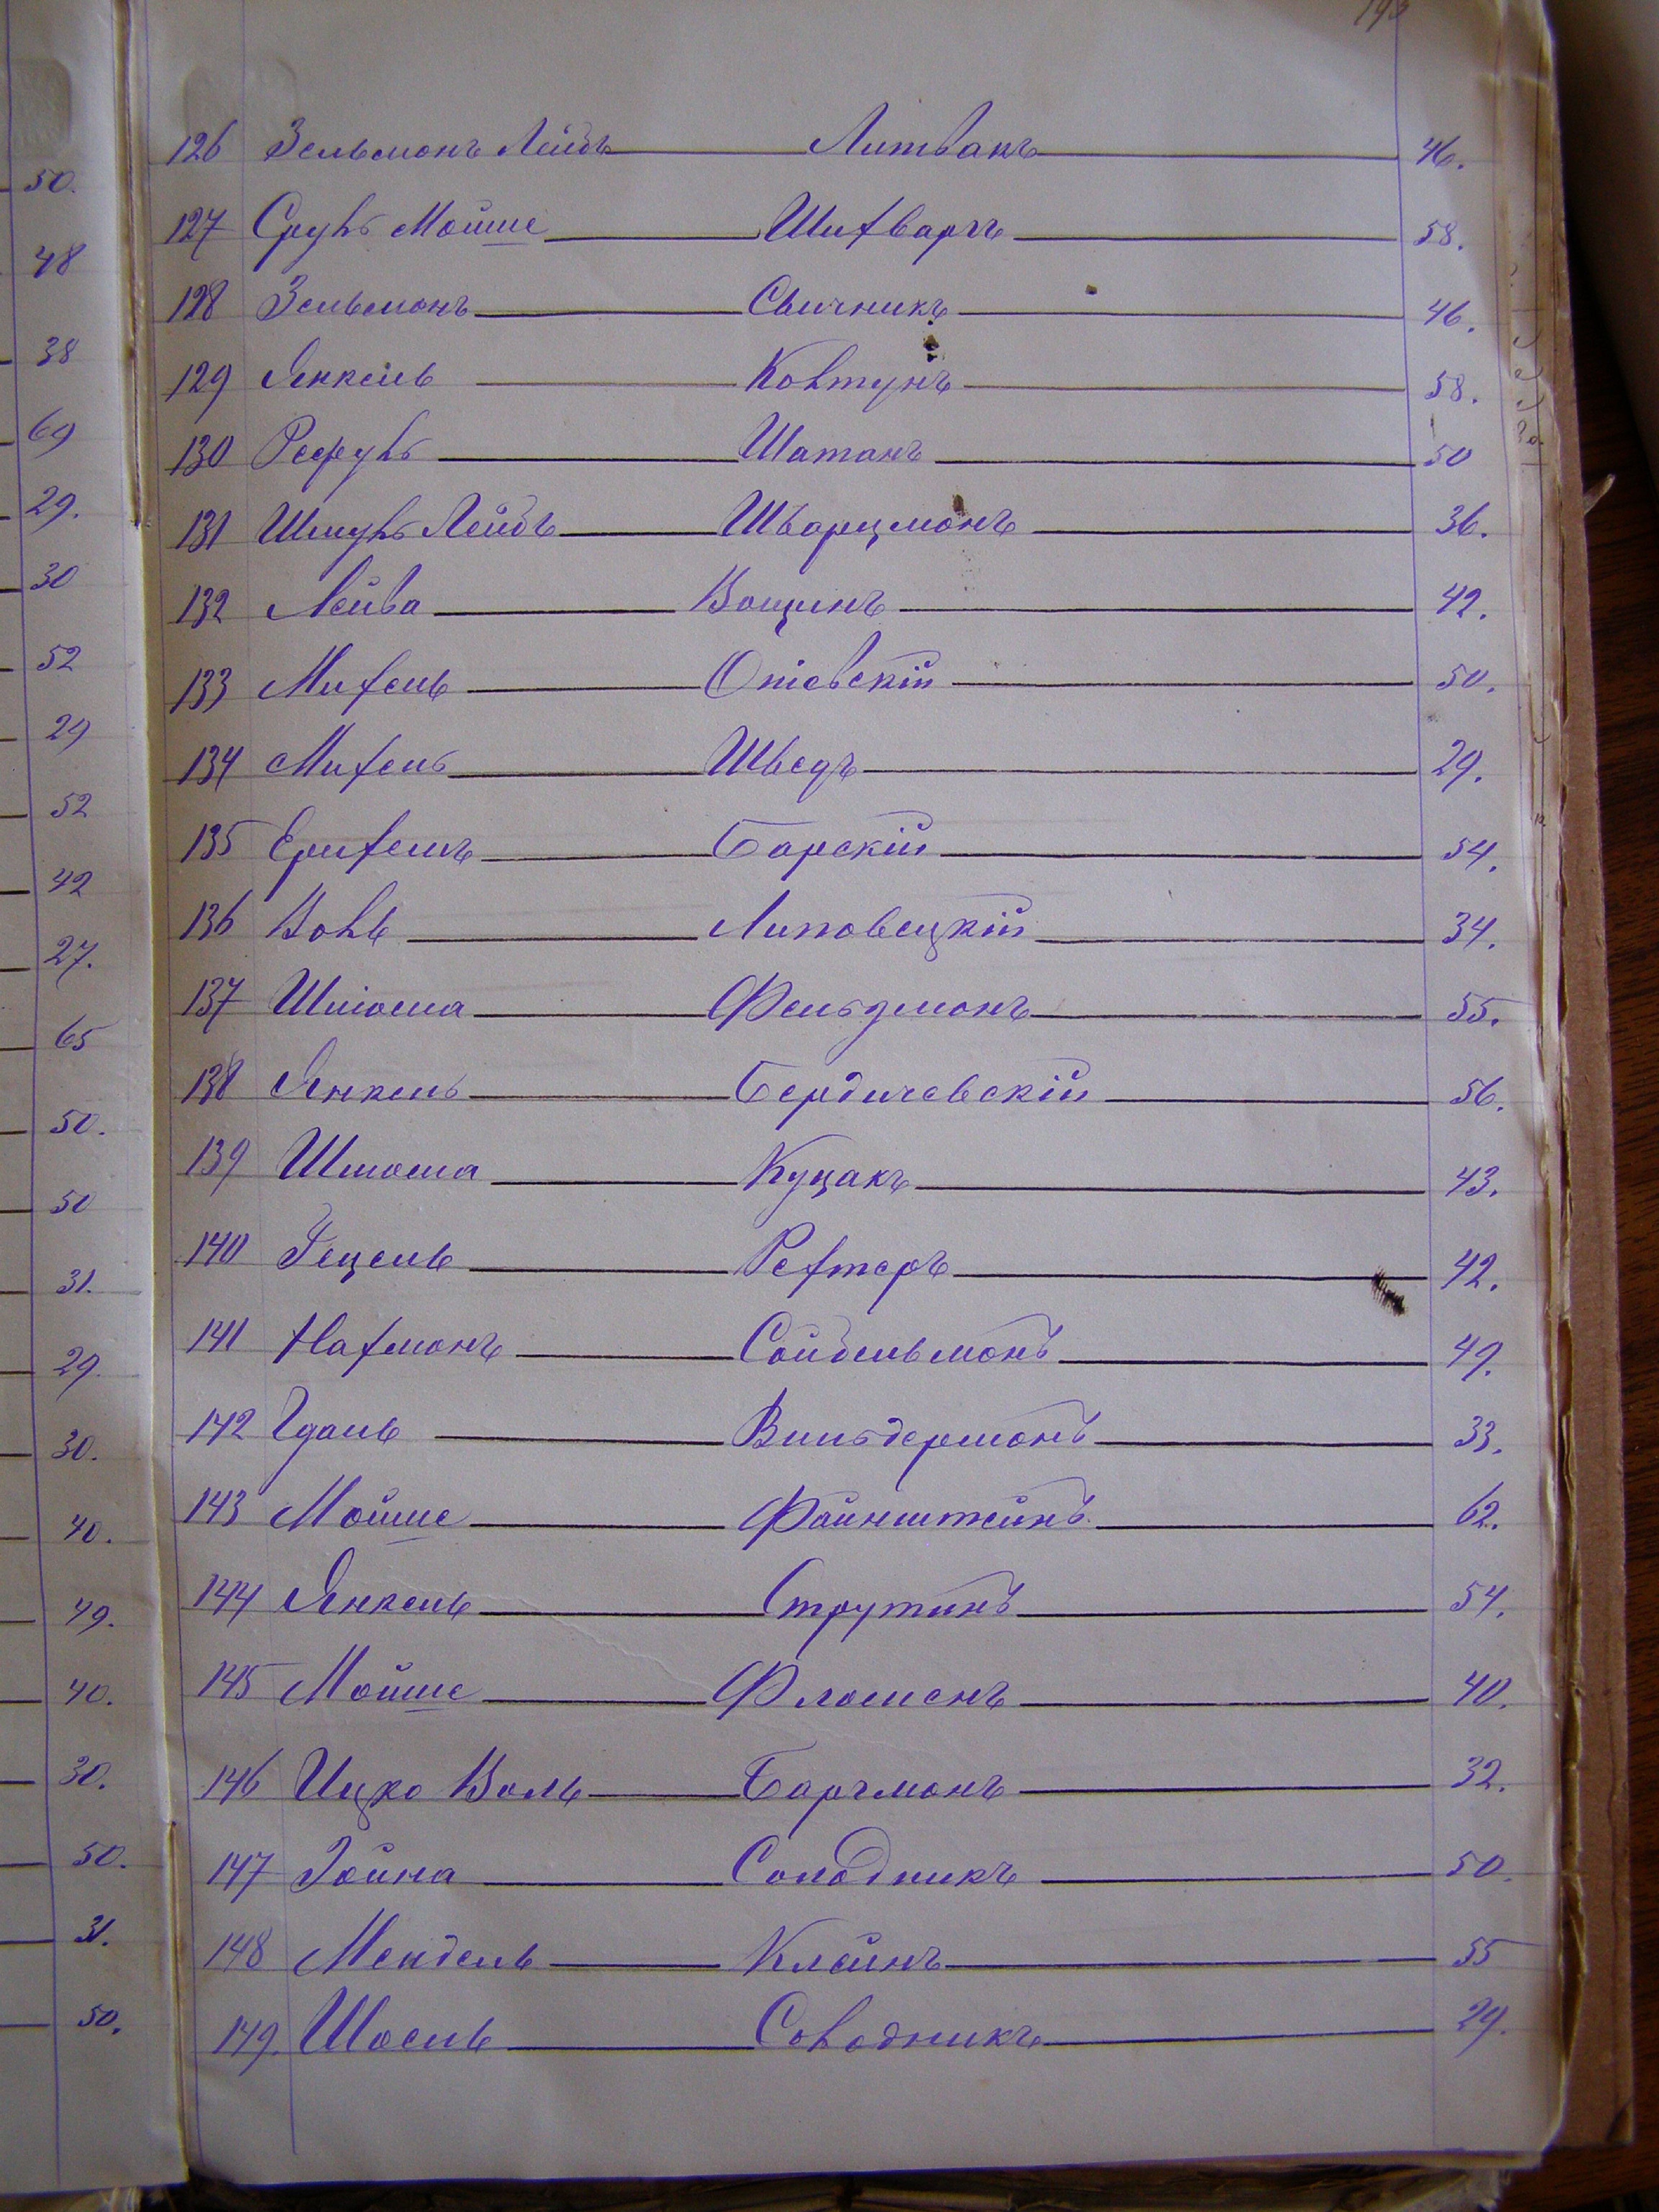 193
50.
48
38
69
29.
30
52
29
52
42
27.
65
50.
50
31.
29.
30.
40.
49.
40.
30.
50.
31.
50.
126 Зельманъ Лейбъ Литвакъ 46.
127 Сруль Мойше Шихваргъ 58.
128 Зельманъ Свичникъ 46.
129 Янкель Колтунъ 58.
130 Рефуль Шатанъ 50
131 Шмуль Лейбъ Шварцманъ 36.
132 Лейва Вощинъ 42.
133 Михель Опіевскій 50.
134 Михель Шведъ 29.
135 Ерихемъ Барскій 54.
136 Воль Липовецкій 34.
137 Шліома Фельдманъ 55.
138 Янкель Бердичевскій 56.
139 Шліома Куцакъ 43.
140 Гецель Рехтеръ 42.
141 Нахманъ Сойбельманъ 49.
142 Гдаль Вильдерманъ 33.
143 Мойше Файнштейнъ 62.
144 Янкель Струтинъ 54.
145 Мойше Фломенъ 40.
146 Ицко Воль Баргманъ 32.
147 Іойна Солодникъ 50.
148 Мендель Клейнъ 55
149. Шоель Солодникъ 29.